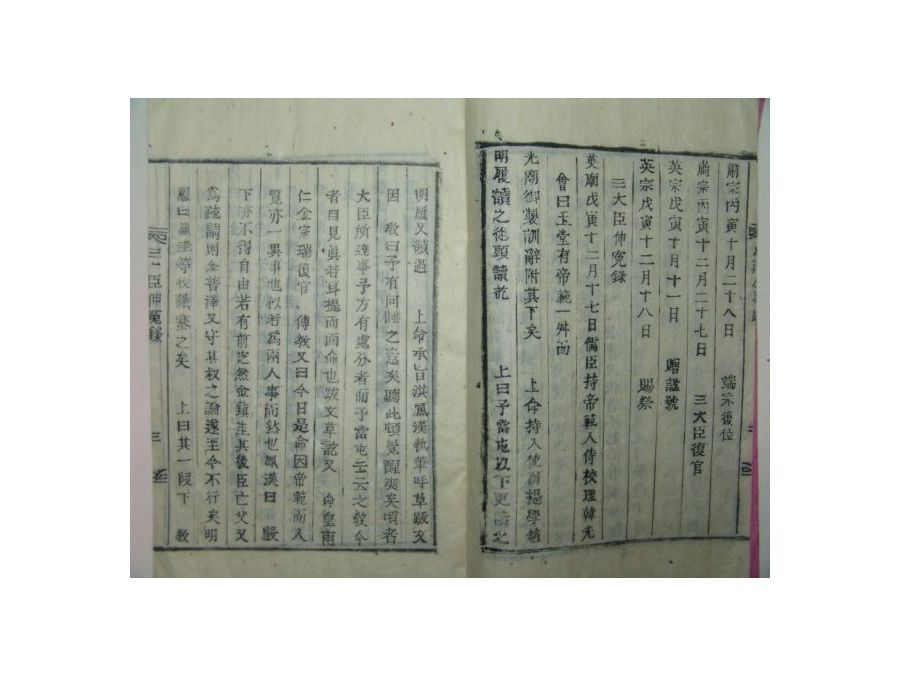 肅宗丙寅十月二十八日 端宗復位
肅宗丙寅十二月二十七日 三大臣復官
英宗戊寅十月十一日 贈諡號
英宗戊寅十二月十八日 賜祭
三大臣伸寃錄
英廟戊寅十二月十七日儒臣持帝範入侍校理韓光
會曰玉堂有帝範一册而
光廟御製訓辭附其下矣 上命持入使副提學趙
明履讀之從頭讀訖 上曰予當 以下更讀之
明履又讀過 上命承旨洪鳳漢執筆呼草跋文
因 敎曰予有同睡之意矣聽此頓覺醒爽矣頃者
大臣所達事予方有處分者而予當 云云之敎今
者自見眞若耳提而面命也跋文草訖又 命皇甫
仁金宗瑞復官 傳敎又曰今日是命因帝範而入
覽亦一異事也似若爲兩人事而 也鳳漢曰 殿
下亦不得自由若有前 然金鎭圭其後臣亡父又
爲疏請則金普澤又守其 之論遂至今不行矣明
履曰鎭圭等 塞之矣 上曰其一段下 敎
三大臣伸寃錄 三